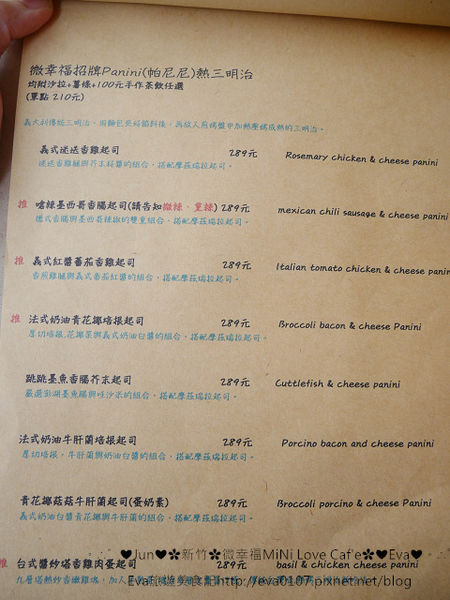 微幸福招牌Panini(帕尼尼)熱三明治
均附沙拉+薯條+100元手作茶飲任選
(單點 210元)
義式迷迭香雞起司 289元 Rosemary chicken & cheese panini
迷迭香雞腿與芥末籽醬的組合，搭配摩茲瑞拉起司。
推 嗆辣墨西哥香腸起司(請告知微辣、重辣) 289元 mexican chili sausage & cheese panini
德式香腸與墨西哥辣椒的雙重組合，搭配摩茲瑞拉起司。
推 義式紅醬蕃茄香雞起司 289元 Italian tomato chicken & cheese panini
香煎雞腿與義式番茄紅醬的組合，搭配摩茲瑞拉起司。
推 法式奶油青花椰培根起司 289元 Broccoli bacon & cheese Panini
厚切培根,花椰菜與義式奶油白醬的組合，搭配摩茲瑞拉起司。
跳跳墨魚香腸芥末起司 289元 Cuttlefish & cheese panini
嚴選澎湖墨魚腸與哇沙米的組合，搭配摩茲瑞拉起司。
法式奶油牛肝菌培根起司 289元 Porcino bacon and cheese panini
厚切培根，牛肝菌與奶油白醬的組合，搭配摩茲瑞拉起司。
青花椰菇菇牛肝菌起司(蛋奶素) 289元 Broccoli porcino & cheese Panini
義式奶油白醬青花椰與牛肝菌的組合，搭配摩茲瑞拉起司。
♥Jun♥✿新竹✿微幸福MiNi Love Caf'e✿♥Eva♥
推 台式醬炒塔香雞肉蛋起司 289元 basil & chicken cheese panini
九層塔熱炒香嫩雞塊，加入
http://eva0107.pixnet.net/blog